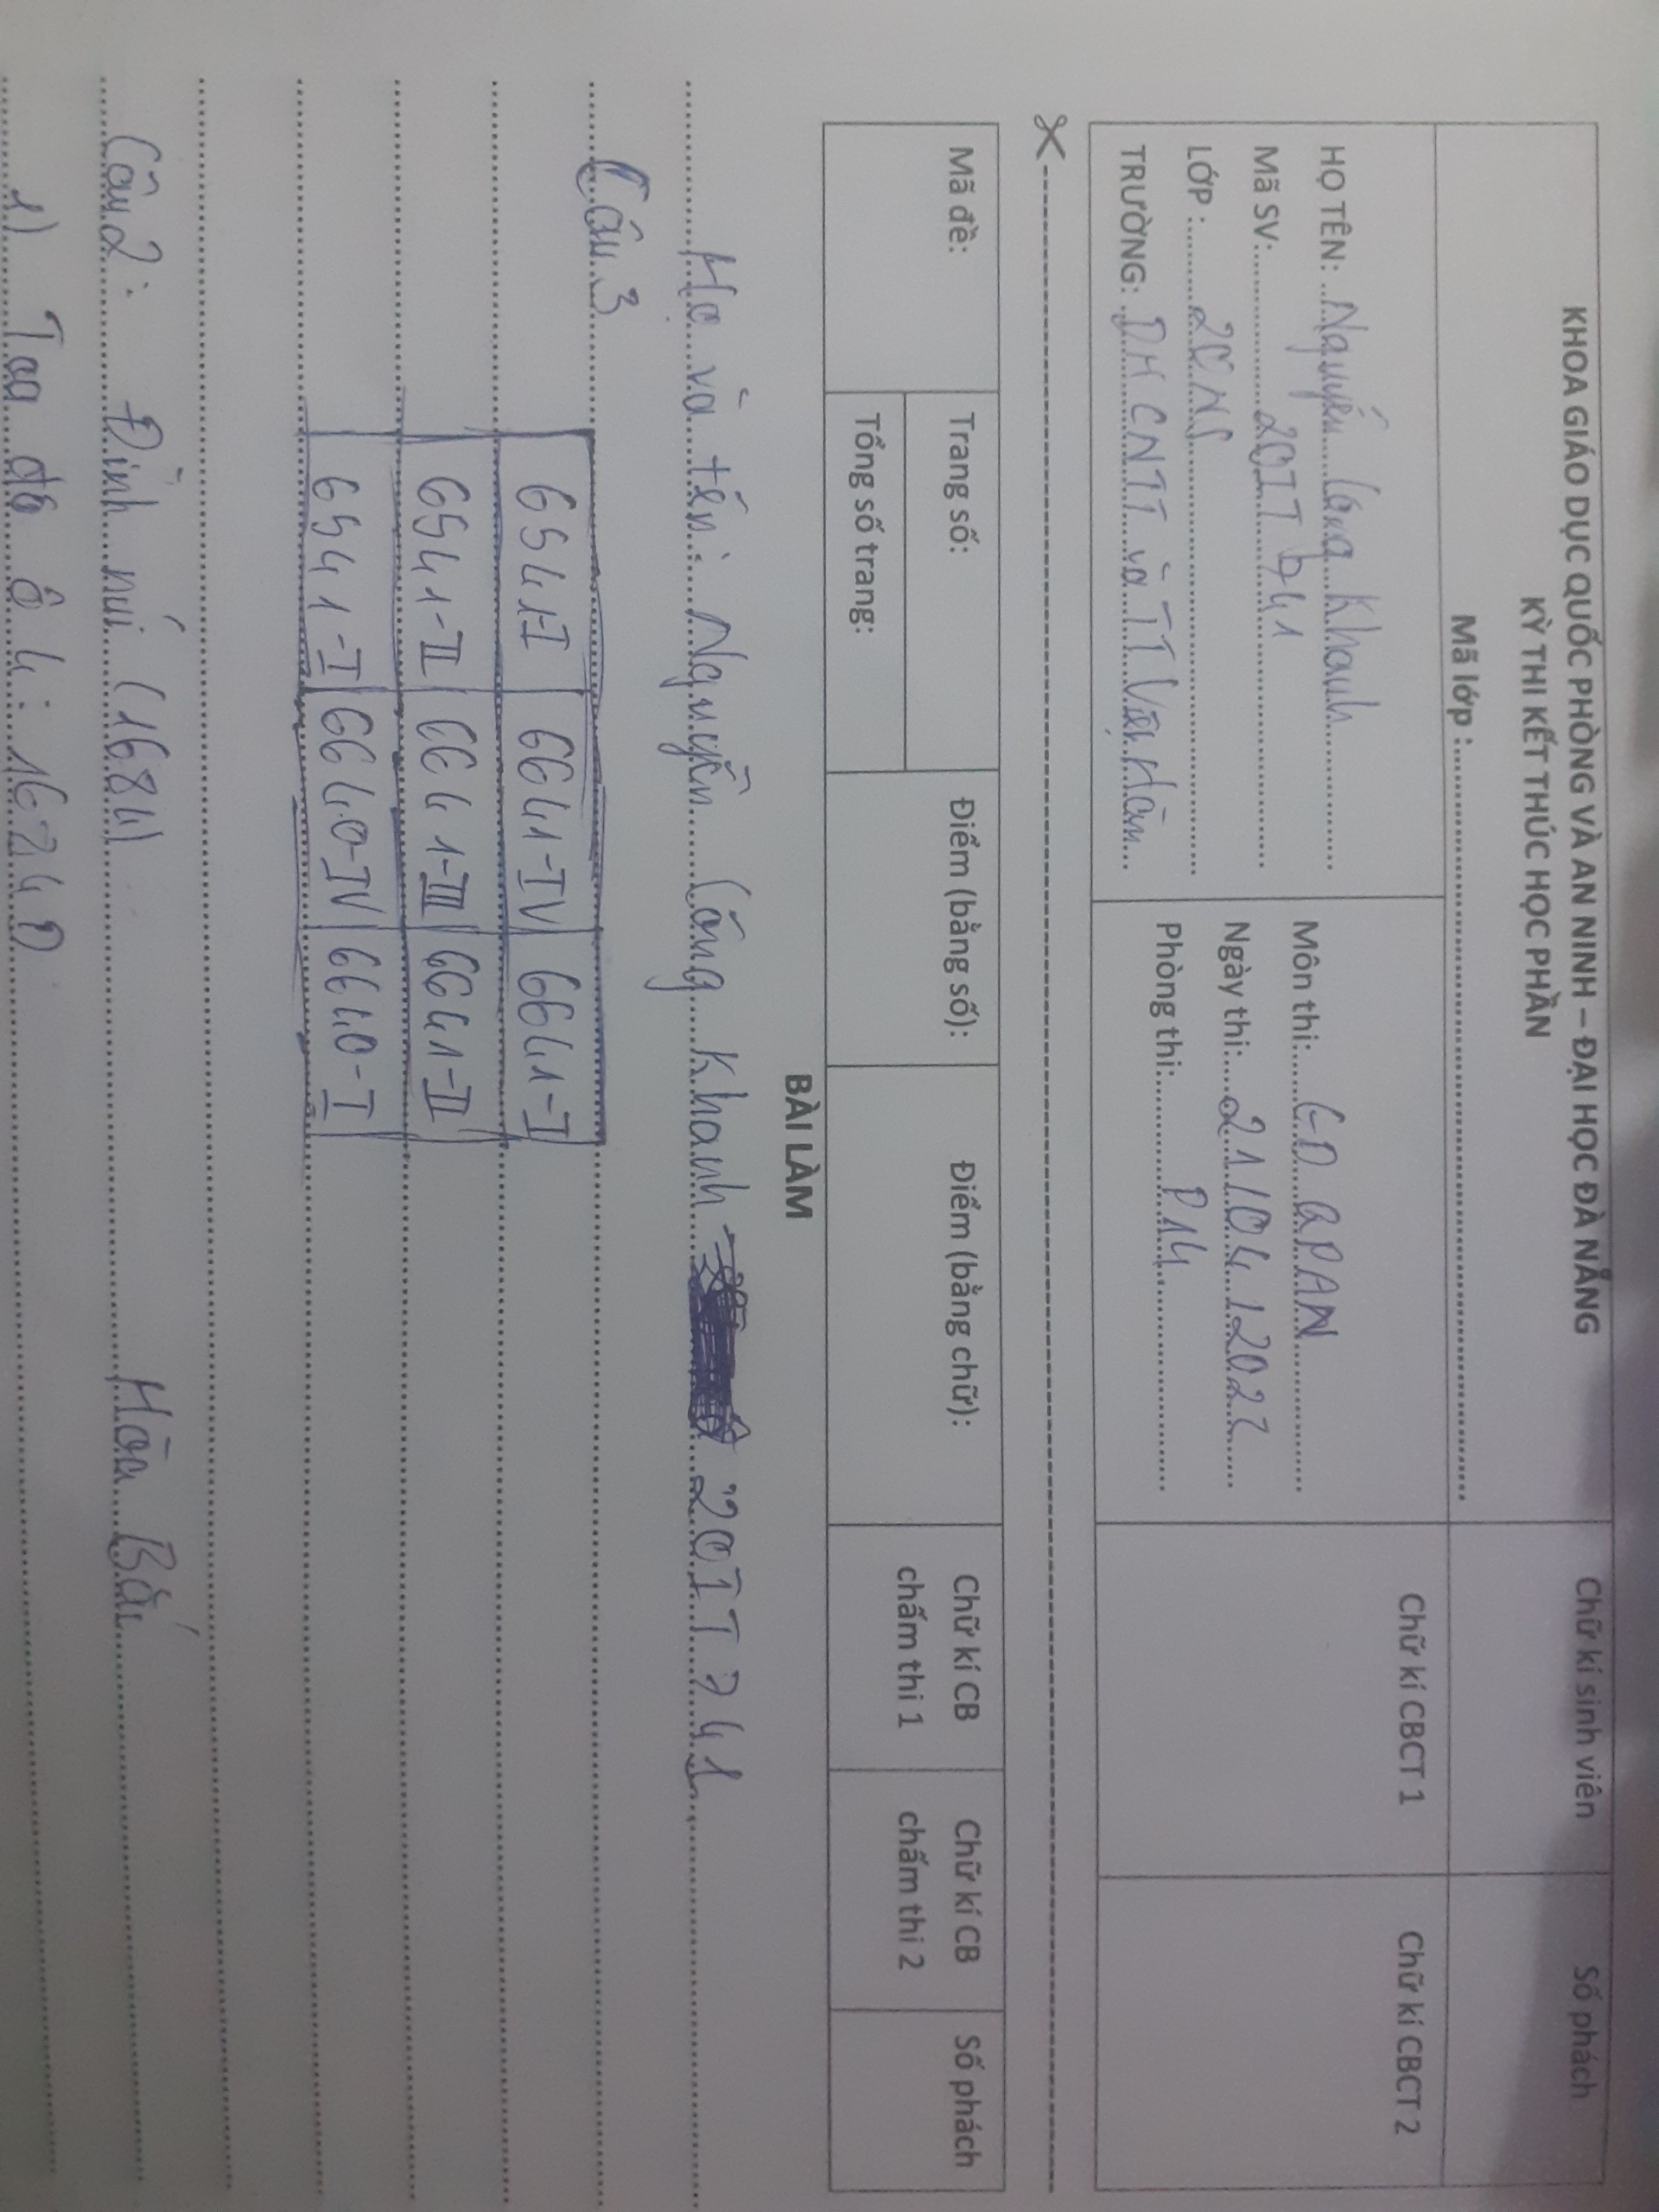 KHOA GIÁO DỤC QUỐC PHÒNG VÀ AN NINH – ĐẠI HỌC ĐÀ NẴNG
KỲ THI KẾT THÚC HỌC PHẦN
Mã lớp :
Chữ kí sinh viên
Số phách
HỌ TÊN: Nguyễn Công Khanh
Mã SV: 20IT741
LỚP : 20NS
TRƯỜNG: ĐHCNTT và TT Việt Hàn
Môn thi: GDQPAN
Ngày thi: 21/04/2022
Phòng thi: P14
Chữ kí CBCT 1
Chữ kí CBCT 2
Mã đề:
Trang số:
Tổng số trang:
Điểm (bằng số):
Điểm (bằng chữ):
Chữ kí CB chấm thi 1
Chữ kí CB chấm thi 2
Số phách
BÀI LÀM
Họ và tên: Nguyễn Công Khanh 20IT741
Câu 3
6541-I 6641-IV 6641-I
6541-II 6641-III 6641-II
6541-I 6640-IV 6640-I
Câu 2: Đỉnh núi (1684) Hòa Bắc
1) Tọa độ ô 4: 16240